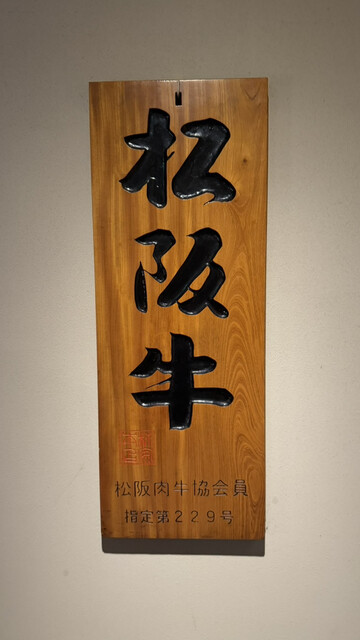 松阪牛
松阪肉牛協会員
指定第229号